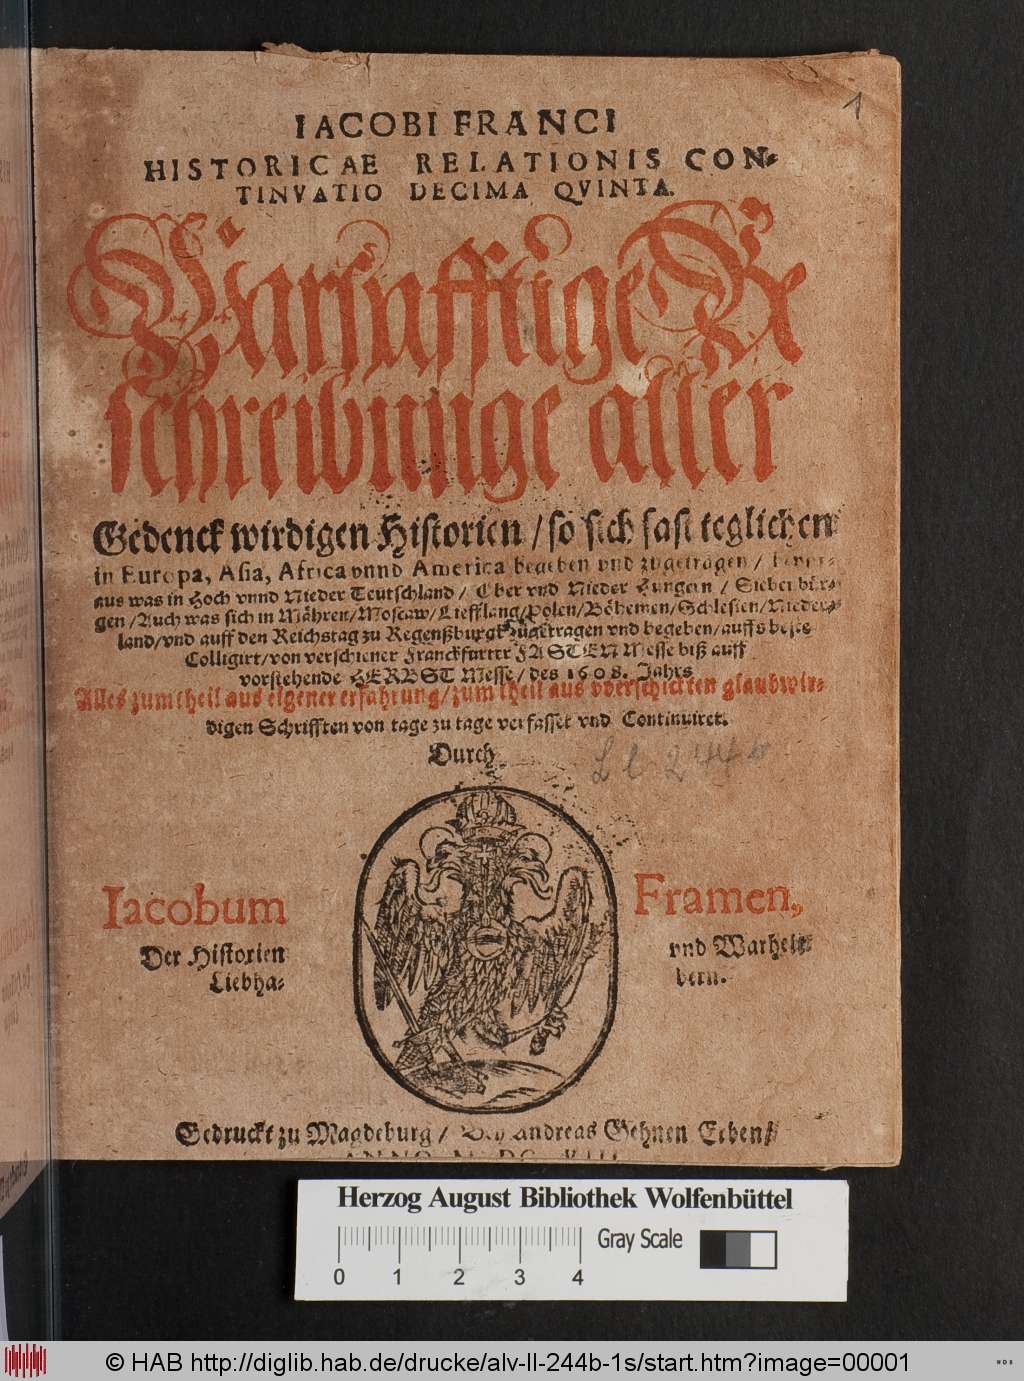 1
IACOBI FRANCI
HISTORICAE RELATIONIS CON-
TINVATIO DECIMA QVINTA.
Warhafftige Be
schreibunge aller
Gedenckwirdigen Historien / so sich fast teglichen
in Europa, Asia, Africa vnnd America begeben vnd zugetragen /
aus was in Hoch vnnd Nieder Teutschland / Ober vnd Nieder Hungern / Siebenbür-
gen / Auch was sich in Mähren / Moscaw / Lieffland / Polen / Böhemen / Schlesien / Nieder-
land / vnd auff den Reichstag zu Regenßburgk zugetragen vnd begeben / auffs beste
Colligirt / von verschiener Franckfurter FASTEN Messe biß auff
vorstehende HERBST Messe / des 1608. Jahrs
Alles zum theil aus eigener erfahrung / zum theil aus vberschickten glaubwir-
digen Schrifften von tage zu tage verfasset vnd Continuiret.
Durch
Iacobum Framen,
Der Historien vnd Warheit
Liebha- bern.
Gedruckt zu Magdeburg / Bey Andreas Gehnen Erben /
ANNO M. DC. VIII
Herzog August Bibliothek Wolfenbüttel
Gray Scale
0 1 2 3 4
© HAB http://diglib.hab.de/drucke/alv-ll-244b-1s/start.htm?image=00001